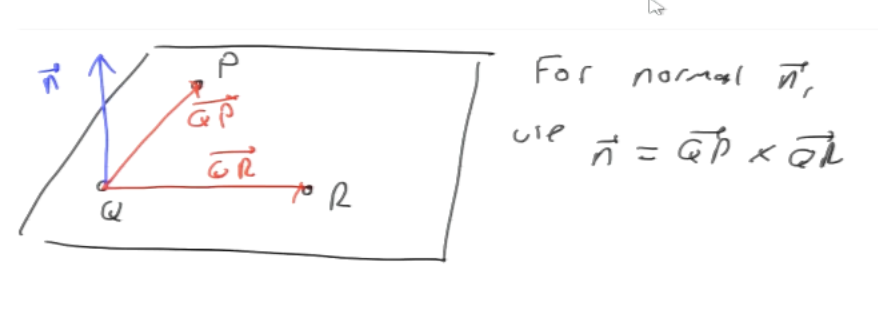 n⃗
P
QP⃗
QR⃗
Q
R
For normal n⃗,
use n⃗ = QP⃗ × QR⃗